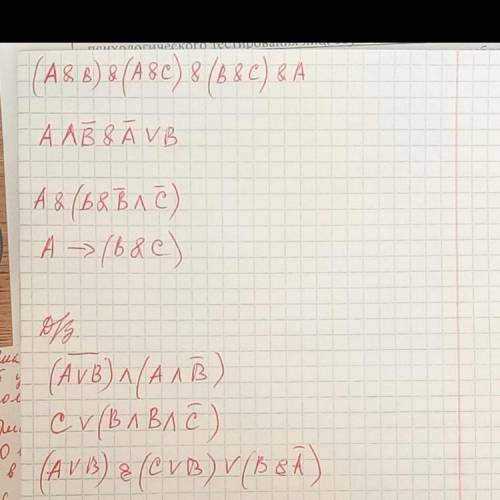 психологического тестирования лиц
(A & B) & (A & C) & (B & C) & A
A ∧ B̅ & A̅ ∨ B
A & (B & B̅ ∧ C̅)
A → (B & C)
Д/з.
(A̅ ̅∨̅ ̅B̅) ∧ (A ∧ B̅)
C ∨ (B ∧ B ∧ C̅)
(A ∨ B) & (C ∨ B) ∨ (B & A̅)